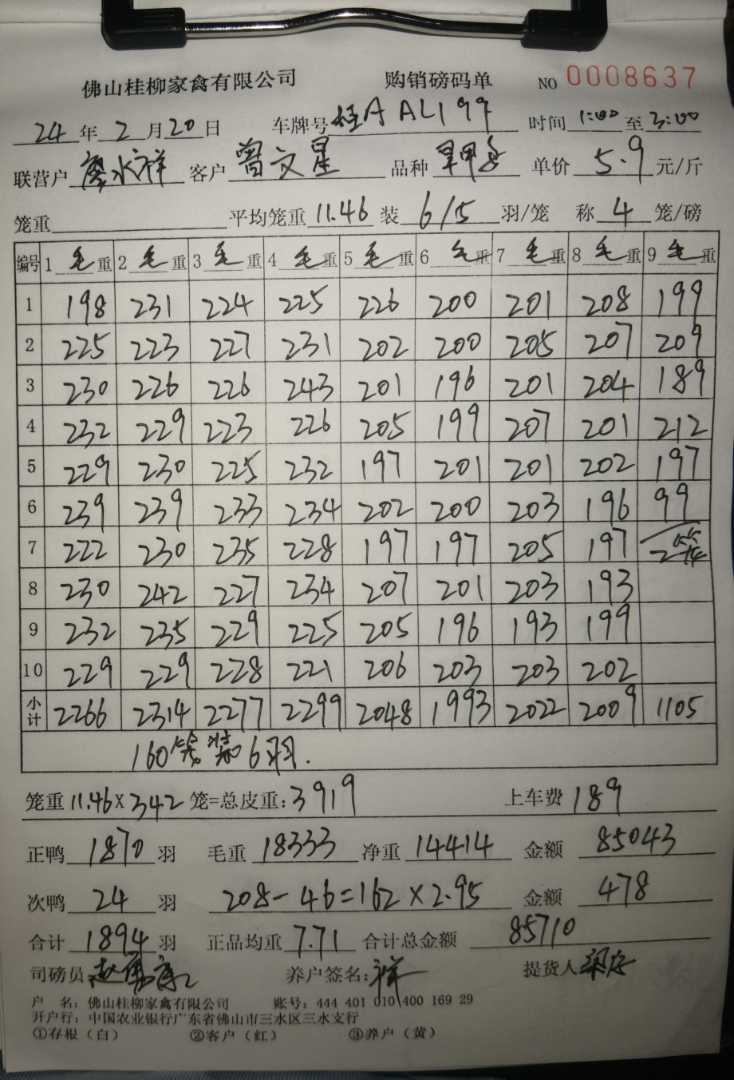 佛山桂柳家禽有限公司 购销磅码单 NO 0008637
24年2月20日 车牌号桂A AL199 时间1:00至3:00
联营户廖水祥 客户曾文星 品种 单价5.9元/斤
笼重 平均笼重11.46装6/5羽/笼 称4笼/磅
编号 1毛重 2毛重 3毛重 4毛重 5毛重 6毛重 7毛重 8毛重 9毛重
1 198 231 224 225 226 200 201 208 199
2 225 223 227 231 202 200 205 207 209
3 230 226 226 243 201 196 201 204 189
4 232 229 223 226 205 199 207 201 212
5 229 230 225 232 197 201 201 202 197
6 239 239 233 234 202 200 203 196 99
7 222 230 235 228 197 197 205 197 2笼
8 230 242 227 234 207 201 203 193
9 232 235 229 225 205 196 193 199
10 229 229 228 221 206 203 203 202
小计 2266 2314 2277 2299 2048 1993 2022 2009 1105
160笼装6羽.
笼重11.46×342笼=总皮重:3919 上车费189
正鸭1870羽 毛重18333净重14414 金额85043
次鸭24羽 208-46=162×2.95 金额478
合计1894羽 正品均重7.71合计总金额85710
司磅员 养户签名:祥 提货人
户 名:佛山桂柳家禽有限公司 账号:444 401 010 400 169 29
开户行:中国农业银行广东省佛山市三水区三水支行
①存根(白) ②客户(红) ③养户(黄)